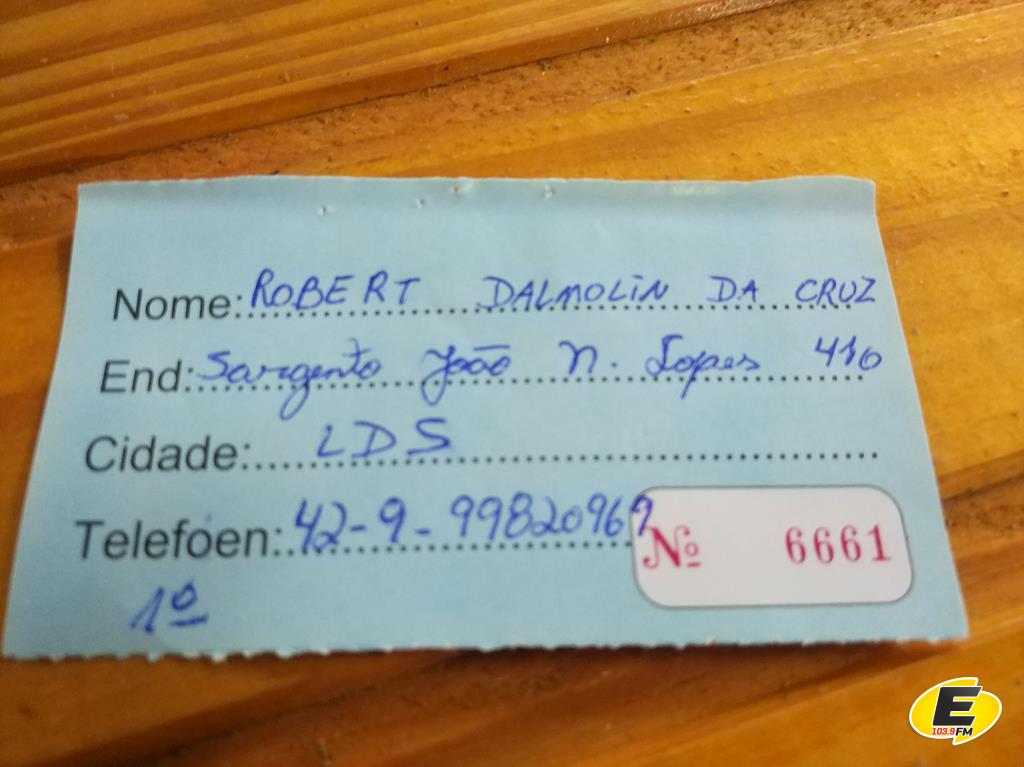 Nome: ROBERT DALMOLIN DA CRUZ
End: Sargento João N. Lopes 410
Cidade: LDS
Telefoen: 42-9-99820969
Nº 6661
1º
E
103.9FM